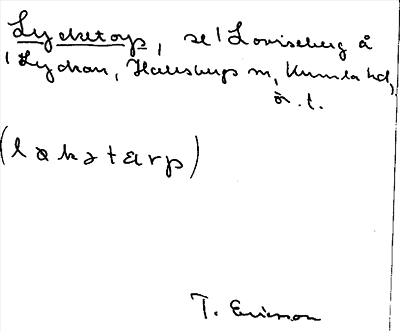 Lycketorp, se 1 Loviseberg å
1 Lyckan, Hallsbergs sn, Kumla hd,
ö. t.
(lɵkətɑrp)
T. Ericsson